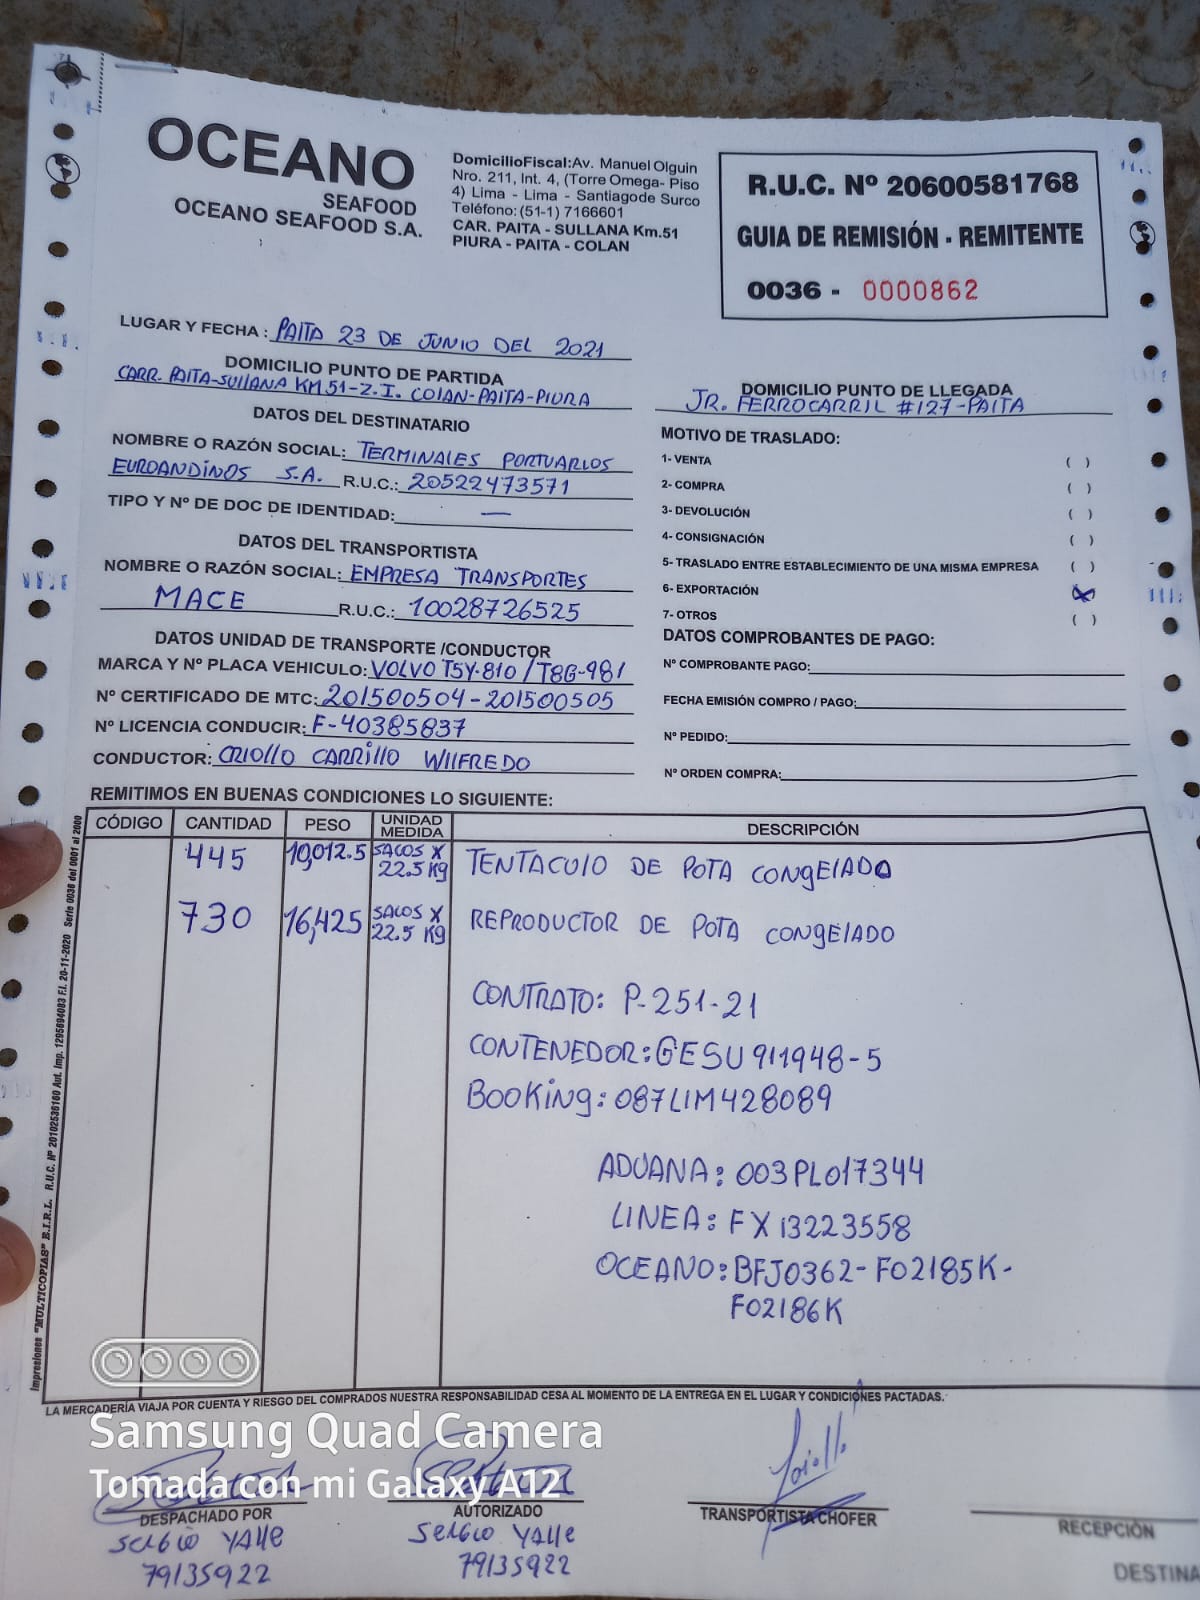 OCEANO
SEAFOOD
OCEANO SEAFOOD S.A.
DomicilioFiscal:Av. Manuel Olguin
Nro. 211, Int. 4, (Torre Omega- Piso
4) Lima - Lima - Santiagode Surco
Teléfono: (51-1) 7166601
CAR. PAITA - SULLANA Km.51
PIURA - PAITA - COLAN
R.U.C. Nº 20600581768
GUIA DE REMISIÓN - REMITENTE
0036 - 0000862
LUGAR Y FECHA : PAITA 23 DE JUNIO DEL 2021
DOMICILIO PUNTO DE PARTIDA
CARR. PAITA-SULLANA KM 51-Z.I. COLAN-PAITA-PIURA
DOMICILIO PUNTO DE LLEGADA
JR. FERROCARRIL #127-PAITA
DATOS DEL DESTINATARIO
NOMBRE O RAZÓN SOCIAL: TERMINALES PORTUARIOS
EUROANDINOS S.A. R.U.C.: 20522473571
TIPO Y Nº DE DOC DE IDENTIDAD: —
DATOS DEL TRANSPORTISTA
NOMBRE O RAZÓN SOCIAL: EMPRESA TRANSPORTES
MACE R.U.C.: 10028726525
DATOS UNIDAD DE TRANSPORTE /CONDUCTOR
MARCA Y Nº PLACA VEHICULO: VOLVO T5Y-810 / T8G-981
Nº CERTIFICADO DE MTC: 201500504-201500505
Nº LICENCIA CONDUCIR: F-40385837
CONDUCTOR: CRIOLLO CARRILLO WILFREDO
MOTIVO DE TRASLADO:
1- VENTA ( )
2- COMPRA ( )
3- DEVOLUCIÓN ( )
4- CONSIGNACIÓN ( )
5- TRASLADO ENTRE ESTABLECIMIENTO DE UNA MISMA EMPRESA ( )
6- EXPORTACIÓN (X)
7- OTROS ( )
DATOS COMPROBANTES DE PAGO:
Nº COMPROBANTE PAGO:
FECHA EMISIÓN COMPRO / PAGO:
Nº PEDIDO:
Nº ORDEN COMPRA:
REMITIMOS EN BUENAS CONDICIONES LO SIGUIENTE:
CÓDIGO CANTIDAD PESO UNIDAD MEDIDA DESCRIPCIÓN
445 10,012.5 SACOS X 22.5 Kg TENTACULO DE POTA CONGELADO
730 16,425 SACOS X 22.5 Kg REPRODUCTOR DE POTA CONGELADO
CONTRATO: P-251-21
CONTENEDOR: GESU 911948-5
BOOKING: 087LIM428089
ADUANA: 003PL017344
LINEA: FX13223558
OCEANO: BFJ0362-F02185K-
F02186K
Impresiones "MULTICOPIAS" E.I.R.L. R.U.C. Nº 20102536160 Aut. Imp. 1295694083 F.I. 20-11-2020 Serie 0036 del 0001 al 2000
LA MERCADERÍA VIAJA POR CUENTA Y RIESGO DEL COMPRADOS NUESTRA RESPONSABILIDAD CESA AL MOMENTO DE LA ENTREGA EN EL LUGAR Y CONDICIONES PACTADAS.
Samsung Quad Camera
Tomada con mi Galaxy A12
DESPACHADO POR
SERGIO YALLE
79135922
AUTORIZADO
SERGIO YALLE
79135922
TRANSPORTISTA CHOFER
RECEPCIÓN
DESTINA